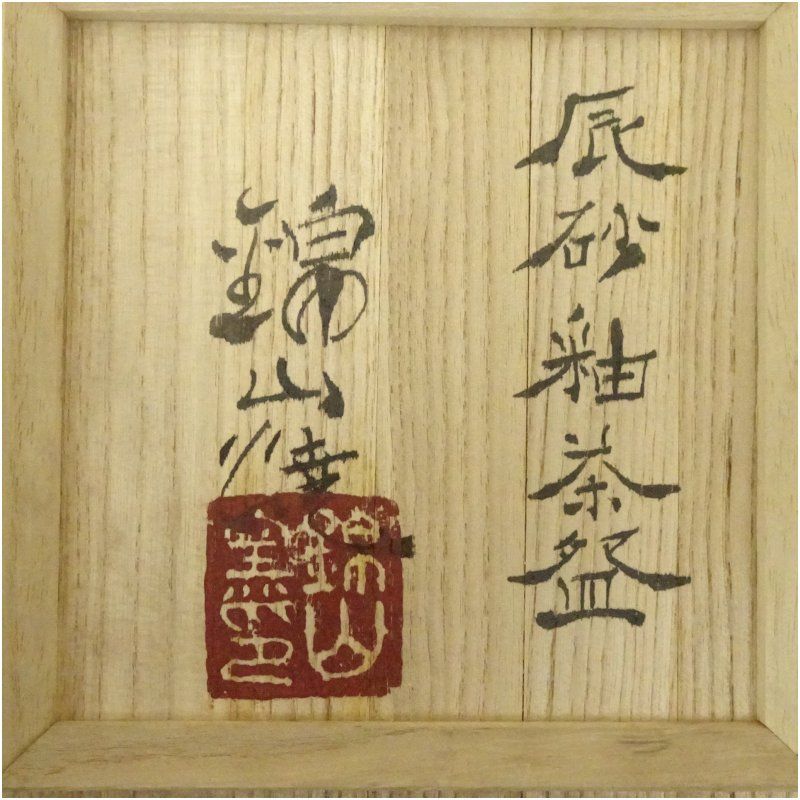 辰砂釉茶盌
錦山焼
錦山